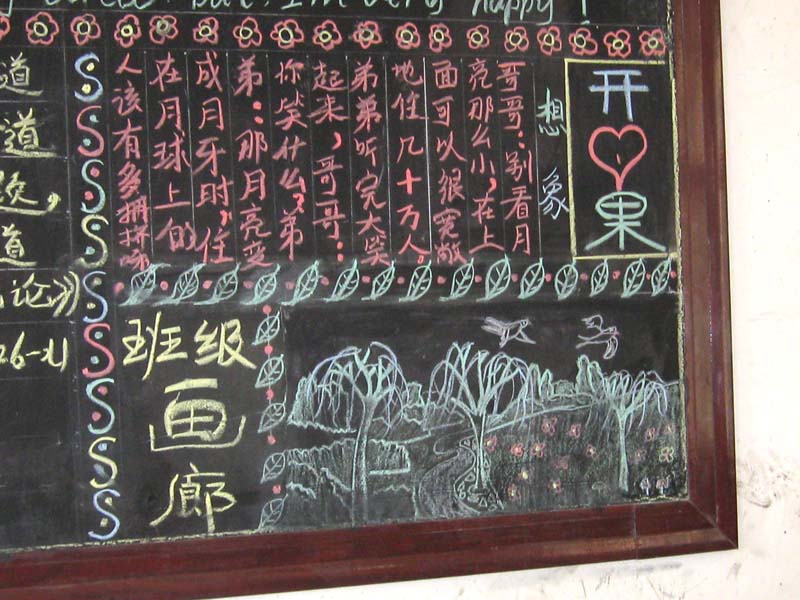 but, I'm very happy !
开
果
想象
哥哥：别看月
亮那么小，在上
面可以很宽敞
地住几十万人。
弟弟听完大笑
起来，哥哥：
你笑什么？弟
弟：那月亮变
成月牙时，住
在月球上的
人该有多拥挤
班级
画
廊
道
道
题，
道
论》